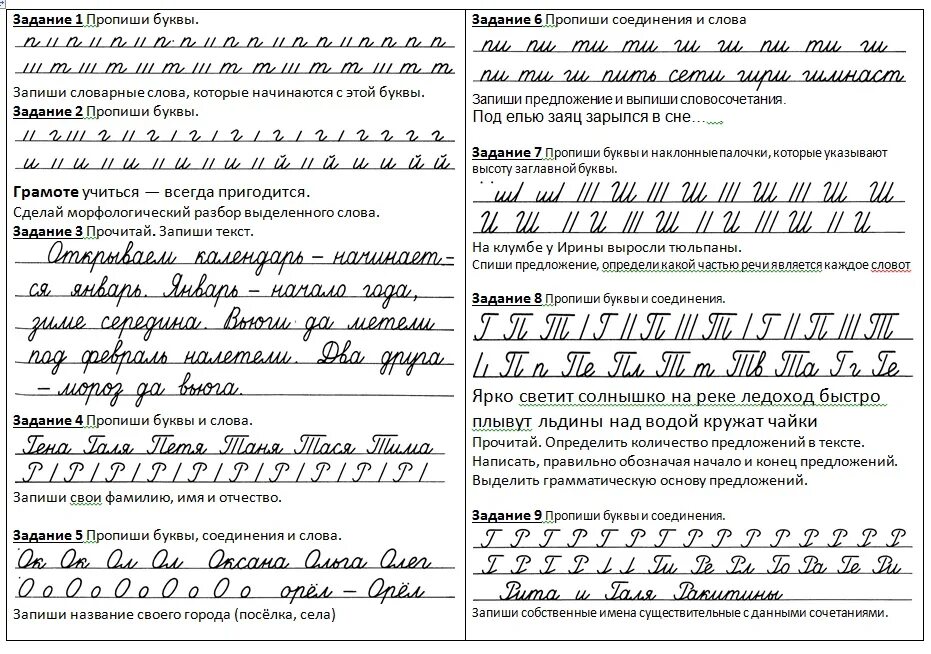 Задание 1 Пропиши буквы.
п п и п и п и п п и п и п и п и п п п
ш т ш т ш т ш т т ш т т ш т т
Запиши словарные слова, которые начинаются с этой буквы.
Задание 2 Пропиши буквы.
и и и и и и и й и й и и й й
Грамоте учиться — всегда пригодится.
Сделай морфологический разбор выделенного слова.
Задание 3 Прочитай. Запиши текст.
Открываем календарь – начинает-
ся январь. Январь – начало года,
зиме середина. Вьюги да метели
под февраль налетели. Два друга
– мороз да вьюга.
Задание 4 Пропиши буквы и слова.
Гена Галя Петя Таня Тася Тима
Р / Р / Р / Р / Р / Р / Р / Р / Р /
Запиши свои фамилию, имя и отчество.
Задание 5 Пропиши буквы, соединения и слова.
Ок Ок Ол Ол Оксана Ольга Олег
О о О о О о О о О о орёл – Орёл
Запиши название своего города (посёлка, села)
Задание 6 Пропиши соединения и слова
пи пи ти ти ги ги пи ти ги
пи ти ги пить сети гири гимнаст
Запиши предложение и выпиши словосочетания.
Под елью заяц зарылся в сне…
Задание 7 Пропиши буквы и наклонные палочки, которые указывают
высоту заглавной буквы.
ш ш /// Ш /// Ш /// Ш /// Ш /// Ш Ш
И Ш // И /// Ш // И /// Ш // И
На клумбе у Ирины выросли тюльпаны.
Спиши предложение, определи какой частью речи является каждое словот
Задание 8 Пропиши буквы и соединения.
Г П Т / Г // П /// Т / Г // П /// Т
П п Пе Пл Т т Тв Та Г г Ге
Ярко светит солнышко на реке ледоход быстро
плывут льдины над водой кружат чайки
Прочитай. Определить количество предложений в тексте.
Написать, правильно обозначая начало и конец предложений.
Выделить грамматическую основу предложений.
Задание 9 Пропиши буквы и соединения.
Г Р Г Р Г Р Г Р Р Р Р Р Р Р Р
Г Р Г Р Ги Ре Рл Го Ра Ге Ри
Рита и Галя Ракитины
Запиши собственные имена существительные с данными сочетаниями.